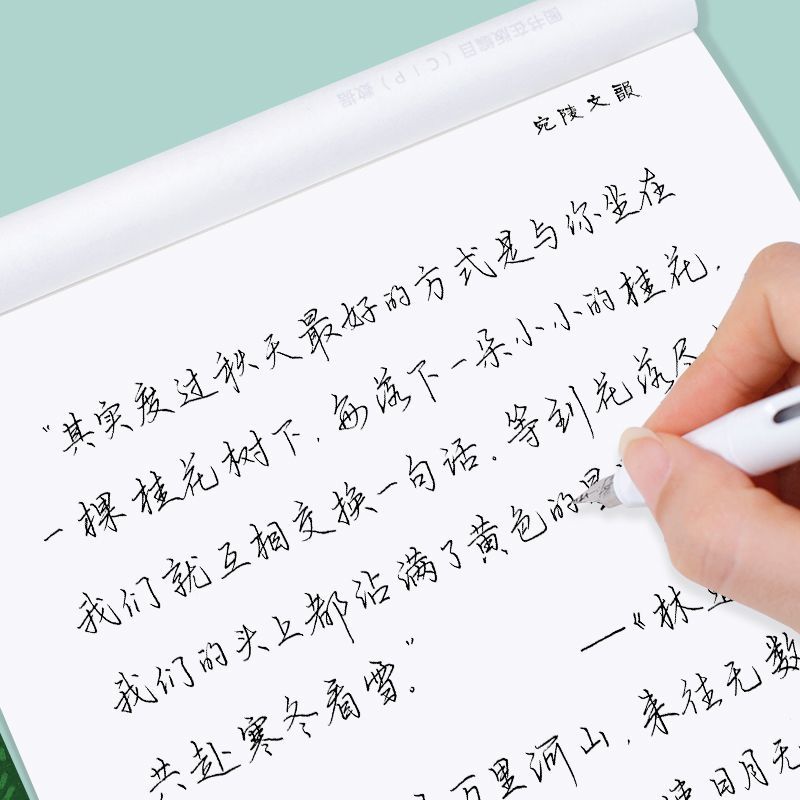 图书在版编目（CIP）数据
宛陵文韻
“其实度过秋天最好的方式是与你坐在
一棵桂花树下，每落下一朵小小的桂花，
我们就互相交换一句话。等到花落尽
我们的头上都沾满了黄色的
共赴寒冬看雪。”
—《林
万里河山，来往无数
日月无